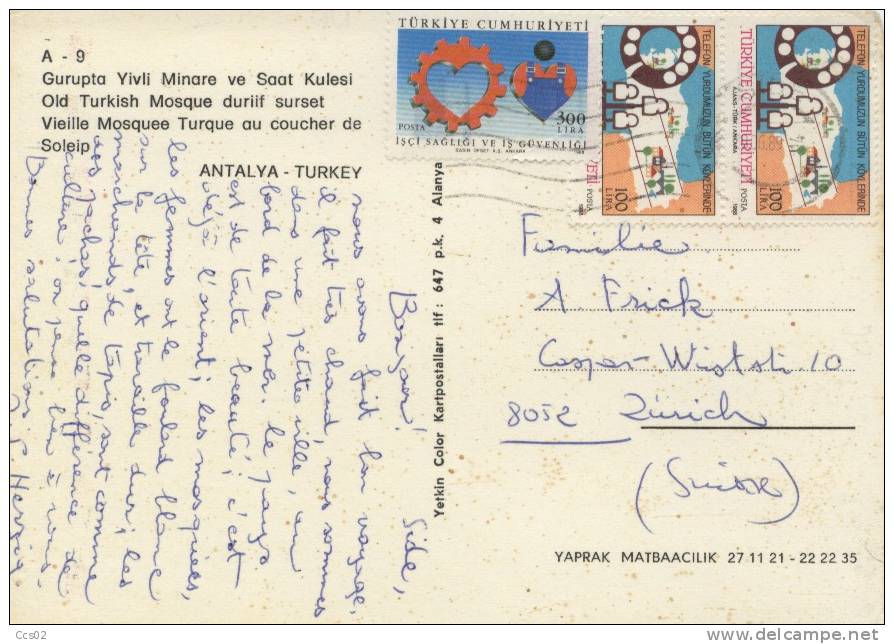 A - 9
Gurupta Yivli Minare ve Saat Kulesi
Old Turkish Mosque duriif surset
Vieille Mosquee Turque au coucher de
Soleip
ANTALYA - TURKEY
TÜRKİYE CUMHURİYETİ
300
LİRA
POSTA
İŞÇİ SAĞLIĞI VE İŞ GÜVENLİĞİ
TELEFON YURDUMUZUN BÜTÜN KÖYLERİNDE
YETİ
POSTA
100
LİRA
TELEFON YURDUMUZUN BÜTÜN KÖYLERİNDE
TÜRKİYE CUMHURİYETİ
AJANS-TÜRK/ANKARA
POSTA
1988
100
LİRA
Side,
Bonjour!
nous avons fait bon voyage,
il fait très chaud, nous sommes
dans une petite ville, au
bord de la mer. le pays
est de toute beauté; c'est
déjà l'orient; les mosquées,
les femmes ont le foulard blanc
sur la tête, et travaille dur; les
marchands de tapis, sont comme
des pachas; quelle différence de
culture. on pense bien à vous.
Bonnes salutations
Herzig
Yetkin Color Kartpostalları tlf : 647 p.k. 4 Alanya
Familie
A. Frick
Casper-Wüststr. 10
8052 Zürich
(Suisse)
YAPRAK MATBAACILIK 27 11 21 - 22 22 35
Ccs02
delcampe.net